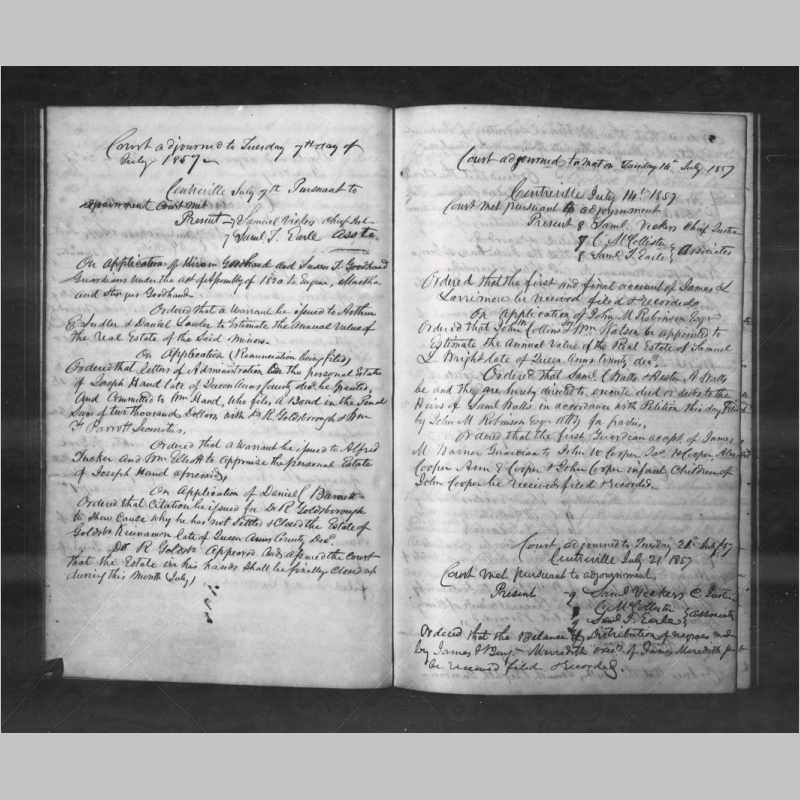 Court adjourned to Tuesday 7th day of
July 1857
Centreville July 7th Pursuant to
Court met
Present Samuel Vickers chief
Saml T. Earle Assts
On Application of Hiram Goodhand and Goodhand
Guardians under the act of Assembly of to Eugene, Martha
and Goodhand
Ordered that a warrant be issued to Arthur
E. Sudler & Daniel Lawler to Estimate the Annual Value of
the Real Estate of the Said Minors.
On Application (Renunciation being filed)
Ordered that Letters of Administration on the personal Estate
of Joseph Hand late of Queen Anns County decd be granted
And Committed to Wm Hand, who files a Bond in the Penal
Sum of two thousand Dollars with Dr R Goldsborough & Wm
T. Parrott Securities.
Ordered that a warrant be issued to Alfred
Tucker and Wm Elliott to appraise the personal Estate
of Joseph Hand aforesaid,
On Application of Daniel C Barnett
Ordered that Citation be issued for Dr R Goldsborough
to Shew Cause why he has not Settled & Closed the Estate of
Goldsbo late of Queen Anns County Decd
Dr R Goldsbo Appeared and assured the Court
that the Estate in his hands shall be finally Closed up
during this Month July,
Court adjourned to meet on Tuesday 14th July 1857
Centreville July 14th 1857
Court met pursuant to adjournment
Present Saml Vickers Chief Justice
C. McCollister
Saml T. Earle Associates
Ordered that the first and final account of James L
Larrimore be received filed & recorded.
On Application of John M Robinson Esqr
Ordered that John Collins & Wm be appointed to
Estimate the Annual Value of the Real Estate of Samuel
T. Wright late of Queen Anns County decd.
Ordered that Saml C Watts & A Watts
be and they are hereby directed to execute deed or deeds to the
Heirs of Saml Watts in accordance with Petition this day filed
by John M Robinson Esqr
Ordered that the first Guardian acct of James
M Warner Guardian to John W Cooper, H Cooper,
Cooper Ann E Cooper & John Cooper infant Children of
John Cooper be received filed & recorded.
Court adjourned to Tuesday 21st July 57
Centreville July 21 1857
Court met pursuant to adjournment
Present Saml Vickers C. Justice
C. McCollister
Saml T. Earle associates
Ordered that the Balance & Distribution of negroes made
by James & Benj. Meredith of James Meredith
be received filed & Recorded.